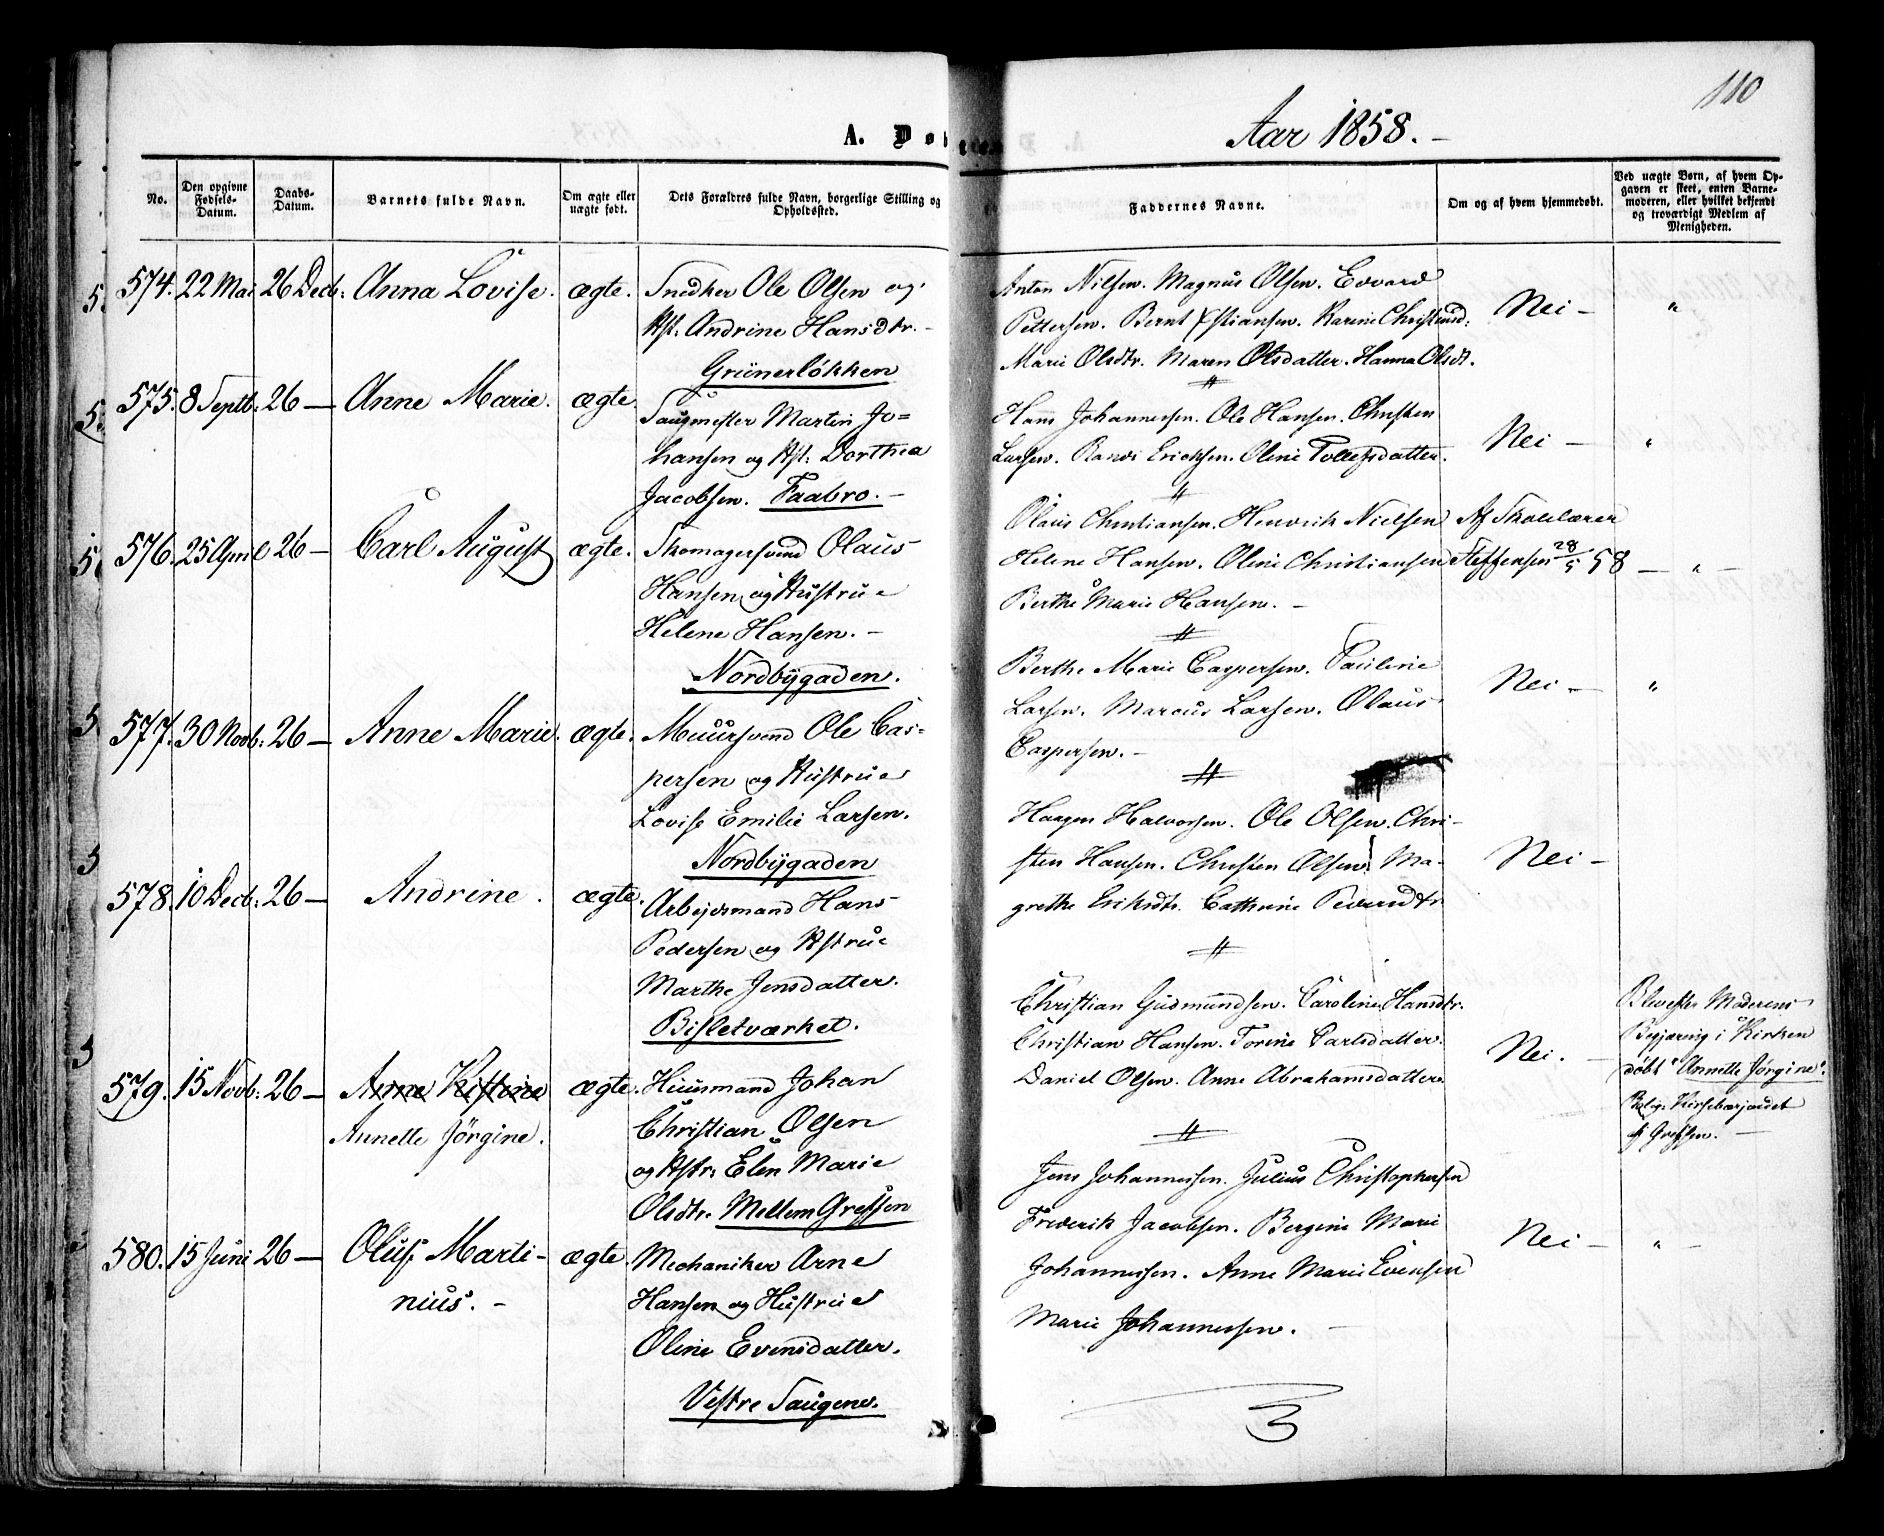 110
A. Døbte.
Aar 1858.-
No.
Den opgivne Fødsels-Datum.
Daabs-Datum.
Barnets fulde Navn.
Om ægte eller uægte født.
Dets Forældres fulde Navn, borgerlige Stilling og Opholdssted.
Faddernes Navne.
Om og af hvem hjemmedøbt.
Ved uægte Børn, af hvem Opgaven er skeet, enten Barnemoderen, eller hvilket bekjendt og troværdigt Medlem af Menigheden.
574. 22 Mai 26 Decb: Anna Lovise. ægte. Snedker Ole Olsen og
Hst. Andrine Hansdtr. -
Grünerløkken
Anton Nilsen. Magnus Olsen. Edvard
Pettersen. Bernt Xstiansen. Karine Christensd:
Marie Olsdtr. Maren Olsdatter. Hanna Olsdt.
Nei - "
575. 8 Septb: 26 — Anne Marie. ægte. Saugmester Martin Jo=
hansen og Hst. Dorthea
Jacobsen. Faabro. -
Hans Johannesen. Ole Hansen. Christen
Larsen. Randi Ericksen. Oline Tollefsdatter.
Nei - "
576. 25 April 26 — Carl August ægte. Skomagersvend Olaus
Hansen og Hustrue
Helene Hansen. -
Nordbygaden.
Olaus Christiansen. Henrich Nielsen
Helene Hansen. Oline Christiansen
Berthe Marie Hansen. -
Af Skolelærer
Steffensen 28/5 58 — " -
577. 30 Novb: 26 — Anne Marie. ægte. Muursvend Ole Cas-
persen og Hustrue
Lovise Emilie Larsen.
Nordbygaden
Berthe Marie Caspersen. Pauline
Larsen. Marcus Larsen. Olaus
Caspersen. -
Nei - "
578. 10 Decb: 26 — Andrine. ægte. Arbejdsmand Hans
Pedersen og Hstrue
Marthe Jensdatter.
Bisletværket.
Haagen Halvorsen. Ole Olsen. Chri-
sten Hansen. Christen Olsen. Ma-
grethe Eriksdtr. Cathrine Pedersdtr
Nei -
579. 15 Novb: 26 — Anne Kistine ægte. Huusmand Johan
Annette Jørgine.
Christian Olsen
og Hstr: Elen Marie
Olsdtr. Mellem Grefsen
Christian Gudmundsen. Caroline Hansdtr.
Christian Hansen. Torine Carlsdatter.
Daniel Olsen. Anne Abrahamsdatter
Nei. -
Blev efter Moderens
Begjæring i Kirken
døbt "Annette Jørgine".
Bolig: Kirsebærjordet
af Grefsen. -
580. 15 Juni 26 — Oluf Marti-
nius. -
ægte. Mechaniker Arne
Hansen og Hustrue
Oline Evensdatter.
Vestre Saugene.
Jens Johannessen. Julius Christophersen
Frederik Jacobsen. Bergine Marie
Johannessen. Anne Marie Evensen
Marie Johannessen. -
Nei - " -